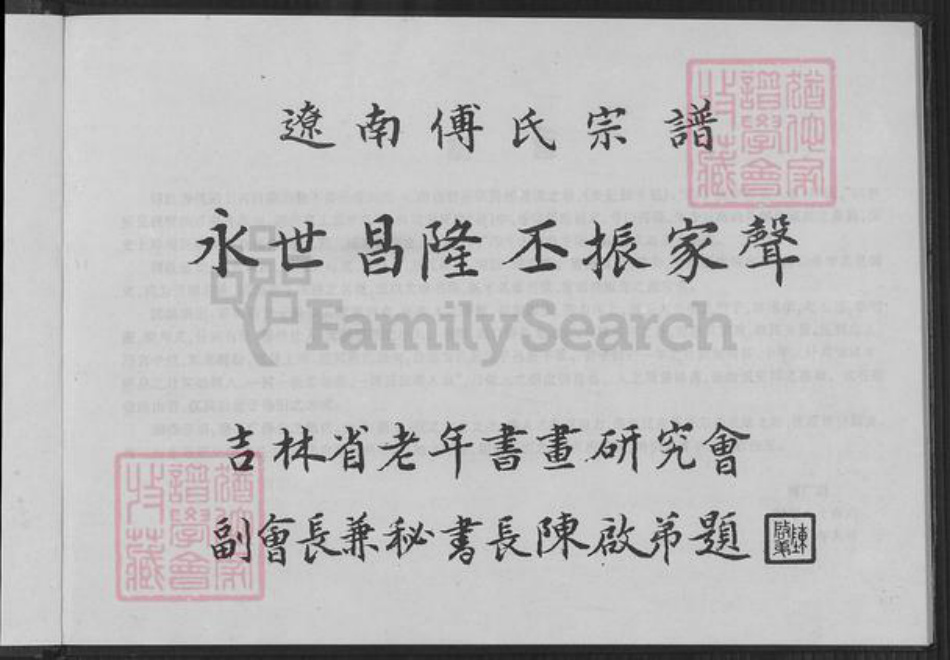 遼南傅氏宗譜
永世昌隆丕振家聲
FamilySearch
吉林省老年書畫研究會
副會長兼秘書長陳啟弟題